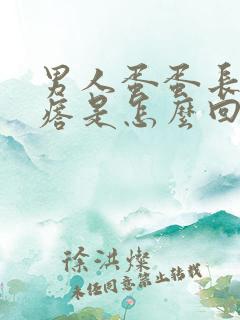 男人蛋蛋長
痞是怎麼回
徐洪燦
未经同意禁止转载